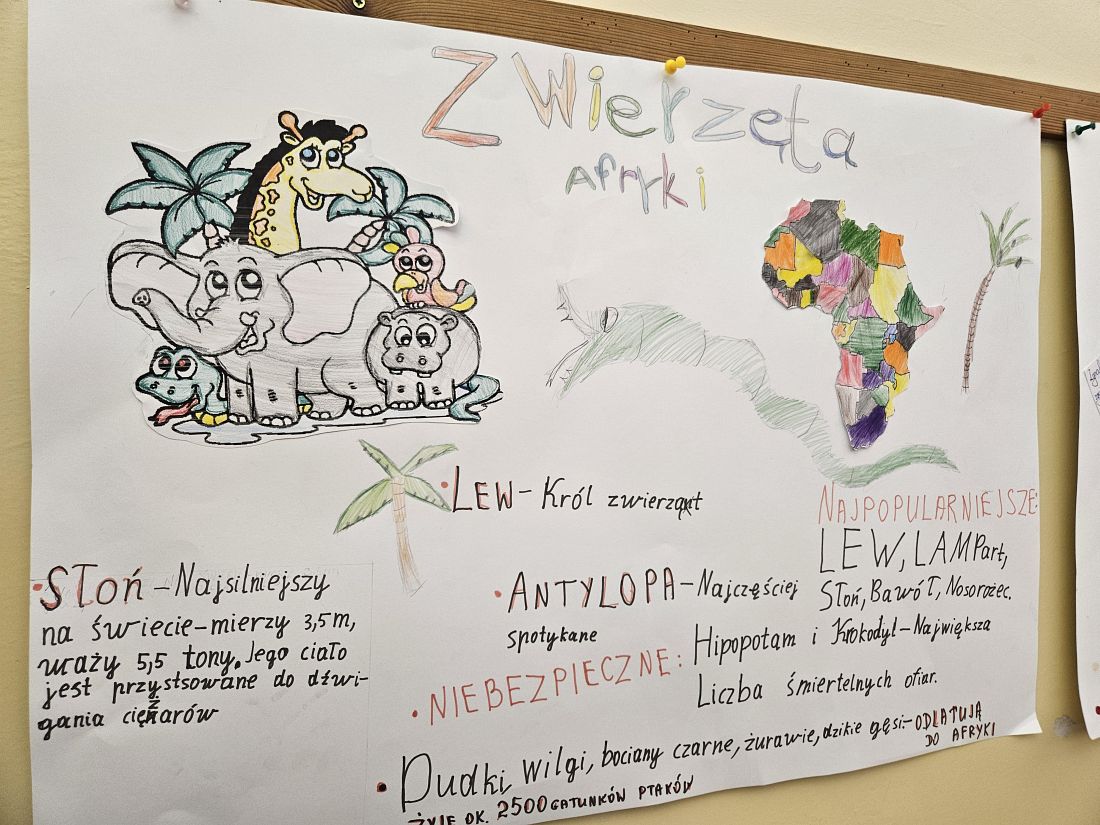 Zwierzęta
Afryki
• LEW - Król zwierząt
NAJPOPULARNIEJSZE:
LEW, LAMPart,
Słoń, Bawół, Nosorożec.
• SŁoń - Najsilniejszy
na świecie - mierzy 3,5 m,
waży 5,5 tony. Jego ciało
jest przystsowane do dźwi-
gania ciężarów
• ANTYLOPA - Najczęściej
spotykane
• NIEBEZPIECZNE: Hipopotam i Krokodyl - Największa
Liczba śmiertelnych ofiar.
• Dudki, wilgi, bociany czarne, żurawie, dzikie gęsi - ODLATUJĄ
DO AFRYKI
ŻYJE OK. 2500 GATUNKÓW PTAKÓW